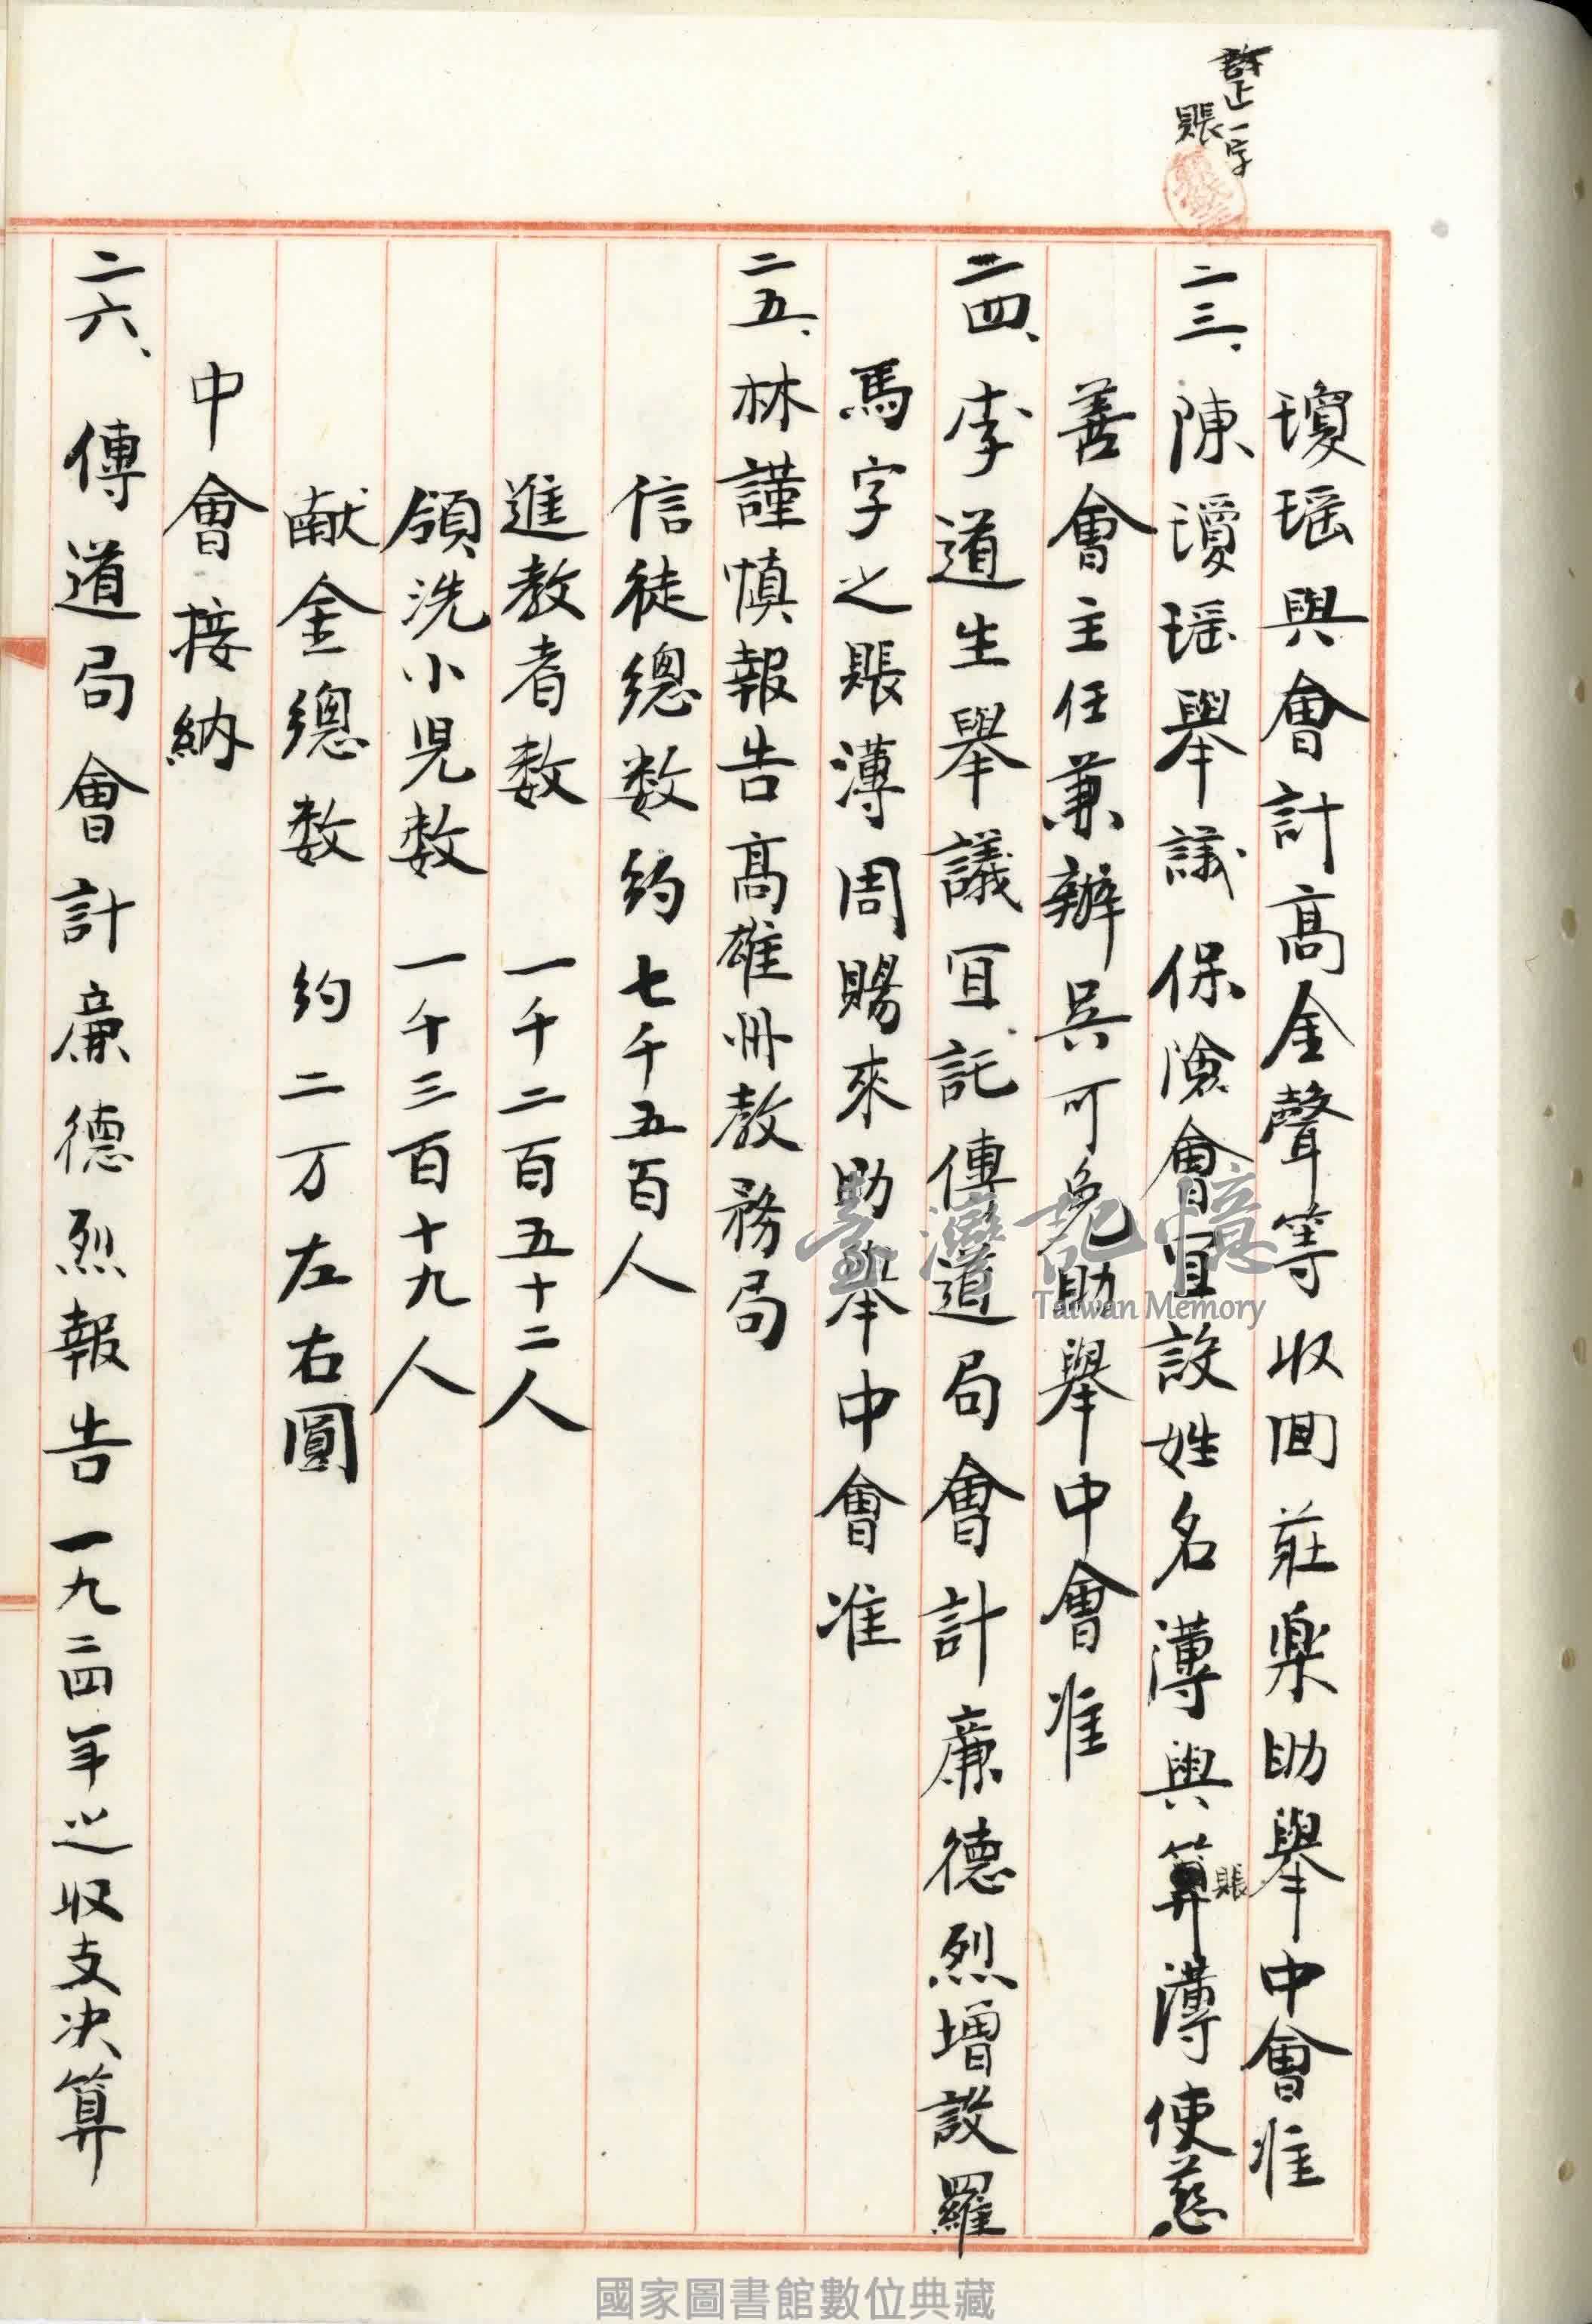 訂正一字
賬
瓊瑶與會計高金聲等收回莊樂助舉中會准
二三、陳瓊瑶舉議保險會宜設姓名薄與算薄使慈
賬
善會主任兼辦吳可免助舉中會准
二四、李道生舉議宜託傳道局會計廉德烈增設羅
馬字之賬薄周賜來助舉中會准
二五、林謹慎報告高雄冊教務局
信徒總数約七千五百人
進教者数 一千二百五十二人
領洗小児数 一千三百十九人
献金總数 約二万左右圓
中會接納
二六、傳道局會計廉德烈報告一九二四年之収支决算
臺灣記憶
Taiwan Memory
國家圖書館數位典藏